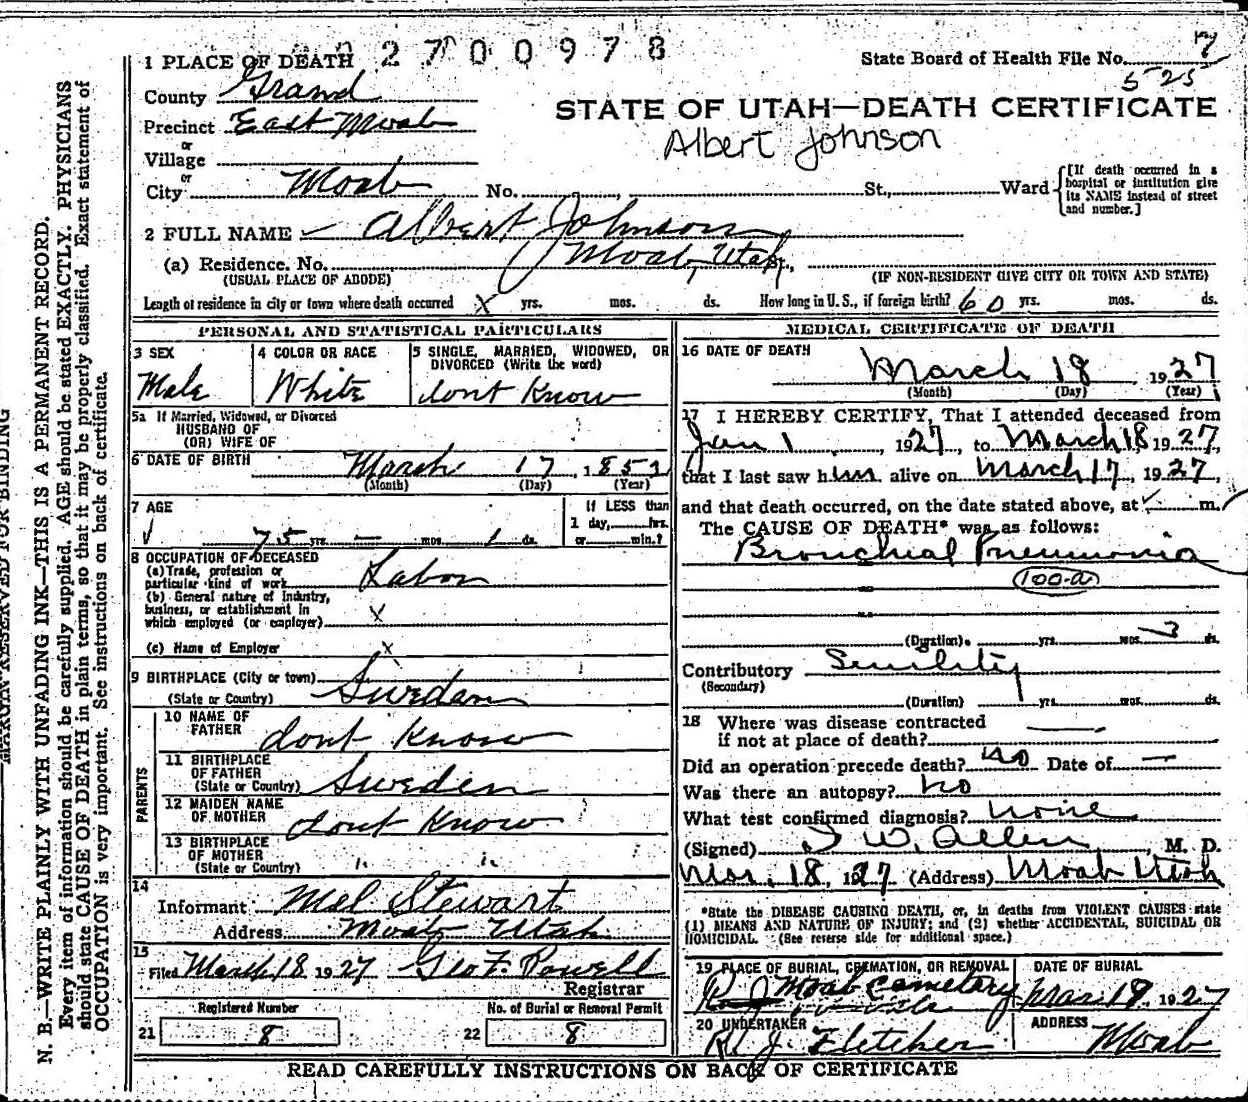 2700978
1 PLACE OF DEATH
State Board of Health File No. 7
525
County Grand
STATE OF UTAH—DEATH CERTIFICATE
Precinct East Moab
Albert Johnson
or
Village
or
City Moab No. , St., Ward
[If death occurred in a
hospital or institution give
its NAME instead of street
and number.]
2 FULL NAME Albert Johnson
(a) Residence. No. Moab, Utah,
(USUAL PLACE OF ABODE)
(IF NON-RESIDENT GIVE CITY OR TOWN AND STATE)
Length of residence in city or town where death occurred X yrs. mos. ds. How long in U. S., if foreign birth? 60 yrs. mos. ds.
PERSONAL AND STATISTICAL PARTICULARS
3 SEX
Male
4 COLOR OR RACE
White
5 SINGLE, MARRIED, WIDOWED, OR
DIVORCED (Write the word)
dont Know
5a If Married, Widowed, or Divorced
HUSBAND OF
(OR) WIFE OF
6 DATE OF BIRTH March 17, 185
(Month) (Day) (Year)
7 AGE
75 yrs. — mos. 1 ds.
If LESS than
1 day, hrs.
or min.?
8 OCCUPATION OF DECEASED
(a) Trade, profession or
particular kind of work Labor
(b) General nature of Industry,
business, or establishment in
which employed (or employer) X
(c) Name of Employer X
9 BIRTHPLACE (City or town)
(State or Country) Sweden
PARENTS
10 NAME OF
FATHER dont Know
11 BIRTHPLACE
OF FATHER
(State or Country) Sweden
12 MAIDEN NAME
OF MOTHER dont Know
13 BIRTHPLACE
OF MOTHER
(State or Country) " "
14
Informant Mel Stewart
Address Moab Utah
15
Filed March 18 1927 Geo F. Powell
Registrar
Registered Number
21 8
No. of Burial or Removal Permit
22 8
MEDICAL CERTIFICATE OF DEATH
16 DATE OF DEATH
March 18, 1927
(Month) (Day) (Year)
17 I HEREBY CERTIFY, That I attended deceased from
Jan 1, 1927, to March 18, 1927,
that I last saw him alive on March 17, 1927,
and that death occurred, on the date stated above, at m.
The CAUSE OF DEATH* was as follows:
Bronchial Pneumonia
100-a
(Duration) yrs. mos. 3 ds.
Contributory Senility
(Secondary)
(Duration) yrs. mos. ds.
18 Where was disease contracted
if not at place of death? —
Did an operation precede death? no Date of —
Was there an autopsy? no
What test confirmed diagnosis? none
(Signed) W. Allen, M. D.
Mar. 18, 1927 (Address) Moab Utah
*State the DISEASE CAUSING DEATH, or, in deaths from VIOLENT CAUSES state
(1) MEANS AND NATURE OF INJURY; and (2) whether ACCIDENTAL, SUICIDAL OR
HOMICIDAL. (See reverse side for additional space.)
19 PLACE OF BURIAL, CREMATION, OR REMOVAL
Moab Cemetery
DATE OF BURIAL
Mar. 19, 1927
20 UNDERTAKER
R. J. Fletcher
ADDRESS
Moab
READ CAREFULLY INSTRUCTIONS ON BACK OF CERTIFICATE
MARGIN RESERVED FOR BINDING
N. B.—WRITE PLAINLY WITH UNFADING INK—THIS IS A PERMANENT RECORD.
Every item of information should be carefully supplied. AGE should be stated EXACTLY. PHYSICIANS
should state CAUSE OF DEATH in plain terms, so that it may be properly classified. Exact statement of
OCCUPATION is very important. See instructions on back of certificate.